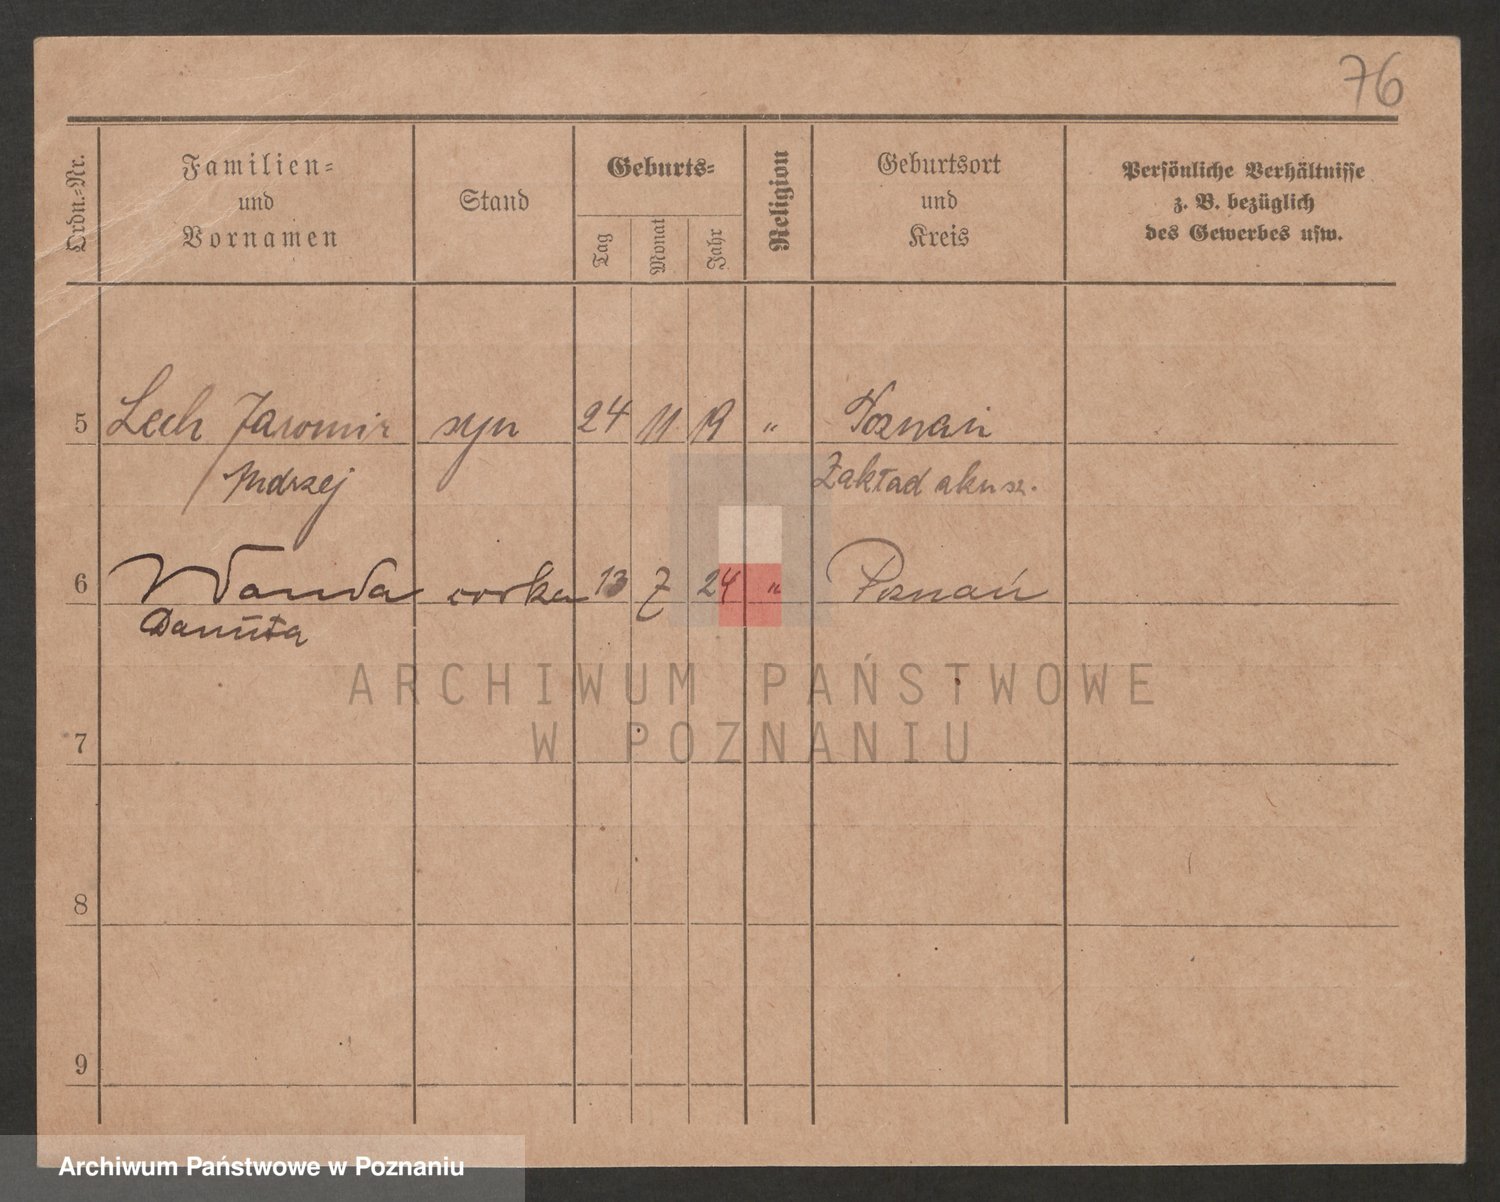 76
Ordn.-Nr.
Familien-
und
Vornamen
Stand
Geburts-
Tag
Monat
Jahr
Religion
Geburtsort
und
Kreis
Persönliche Verhältnisse
z. B. bezüglich
des Gewerbes usw.
5 Lech Jaromir syn 24 11 19 " Poznań
Andrzej Zakład akusz.
6 Wanda corka 13 7 24 " Poznań
Danuta
ARCHIWUM PAŃSTWOWE
W POZNANIU
7
8
9
Archiwum Państwowe w Poznaniu